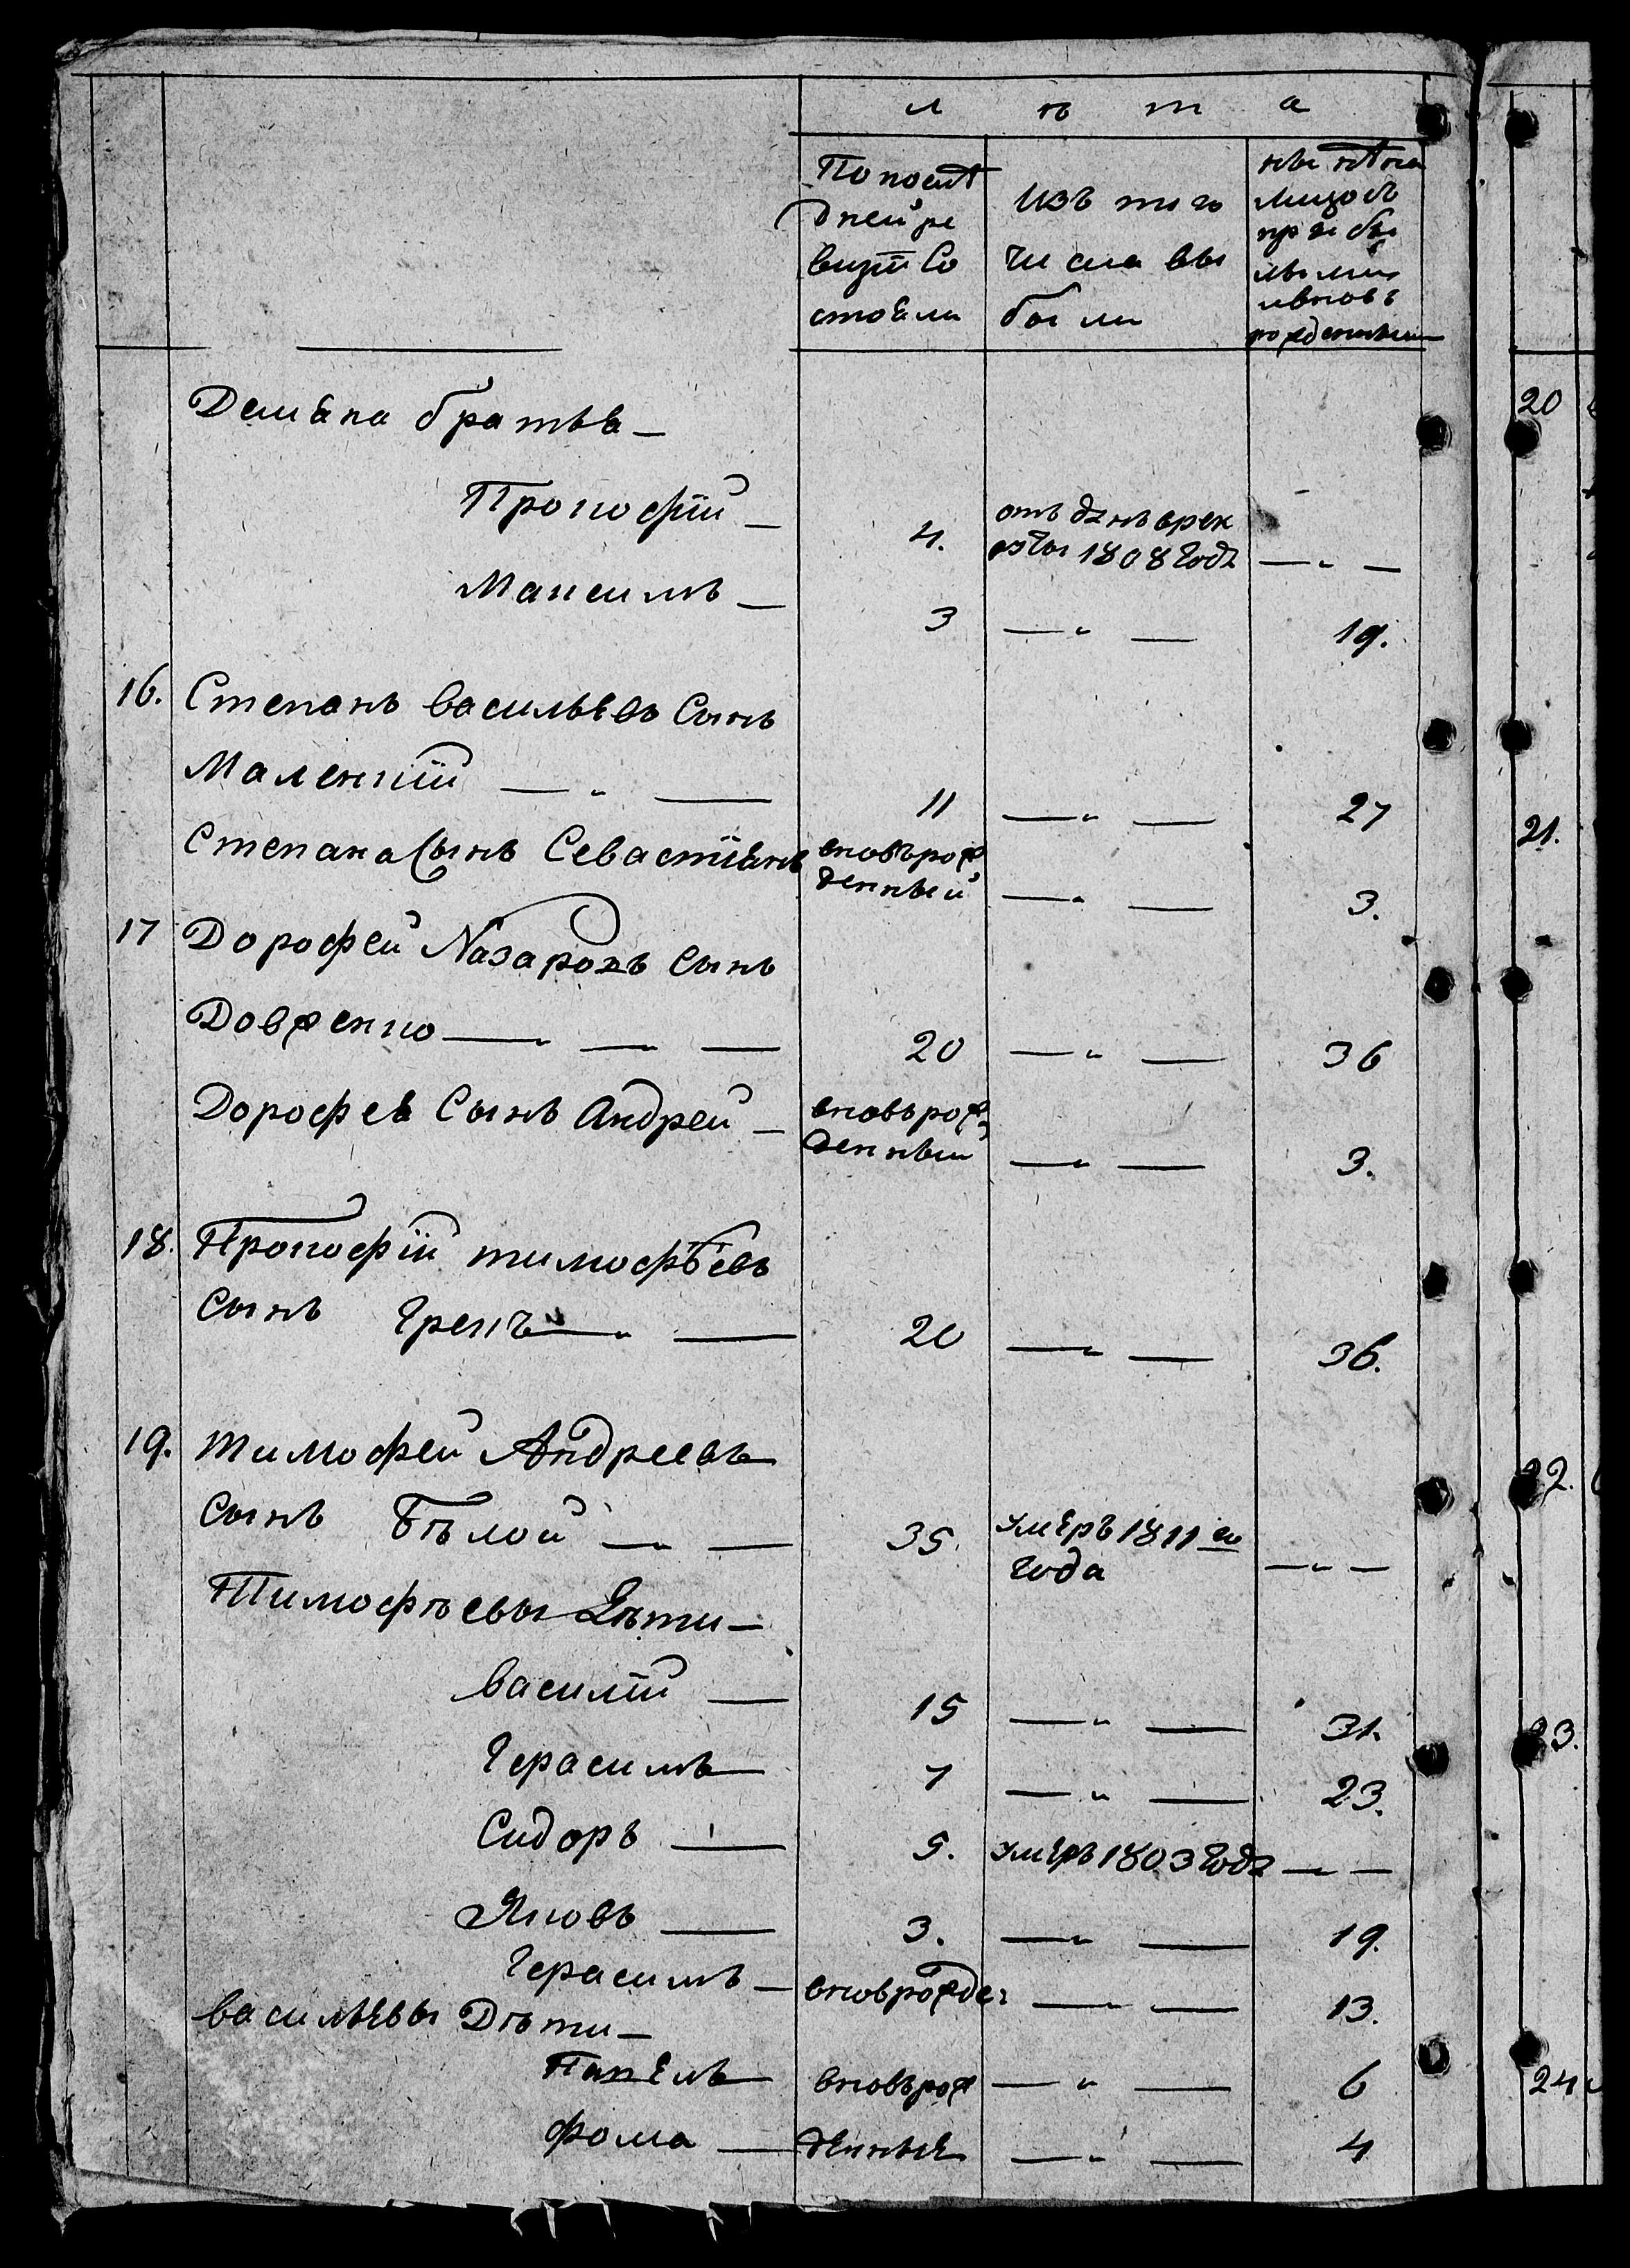 лѣта
По послѣ
дней ре
визіи со
стояли
изъ того
числа вы
были
ны нѣ на
лицо съ
прибы
лыми
и вновь
рожденными
Демяна братья —
Прокофій — 4.
отъ данъ врек
руты 1808 года — " —
Максимъ — 3 — " — 19.
16. Степанъ Васильевъ сынъ
Маленкій — " — 11 — " — 27
Степана сынъ Севастіянъ вновь рож
денный — " — 3.
17 Дорофей Назаровъ сынъ
Довженко — " — — 20 — " — 36
Дорофея сынъ Андрей — вновь рож
денный — " — 3.
18. Прокофій Тимофѣевъ
сынъ Грекъ — " — 20 — " — 36.
19. Тимофей Андреевъ
сынъ Бѣлой — " — 35. умеръ 1811 го
года — " —
Тимофѣевы дѣти —
Василій — 15 — " — 31.
Герасимъ — 7 — " — 23.
Сидоръ — 5. умеръ 1803 года — —
Яковъ — 3. — " — 19.
Герасимъ — вновь рожде: — " — 13.
Васильевы дѣти —
вновь рож — " — 6
Фома — денные — " — 4
20
21.
22.
23.
24